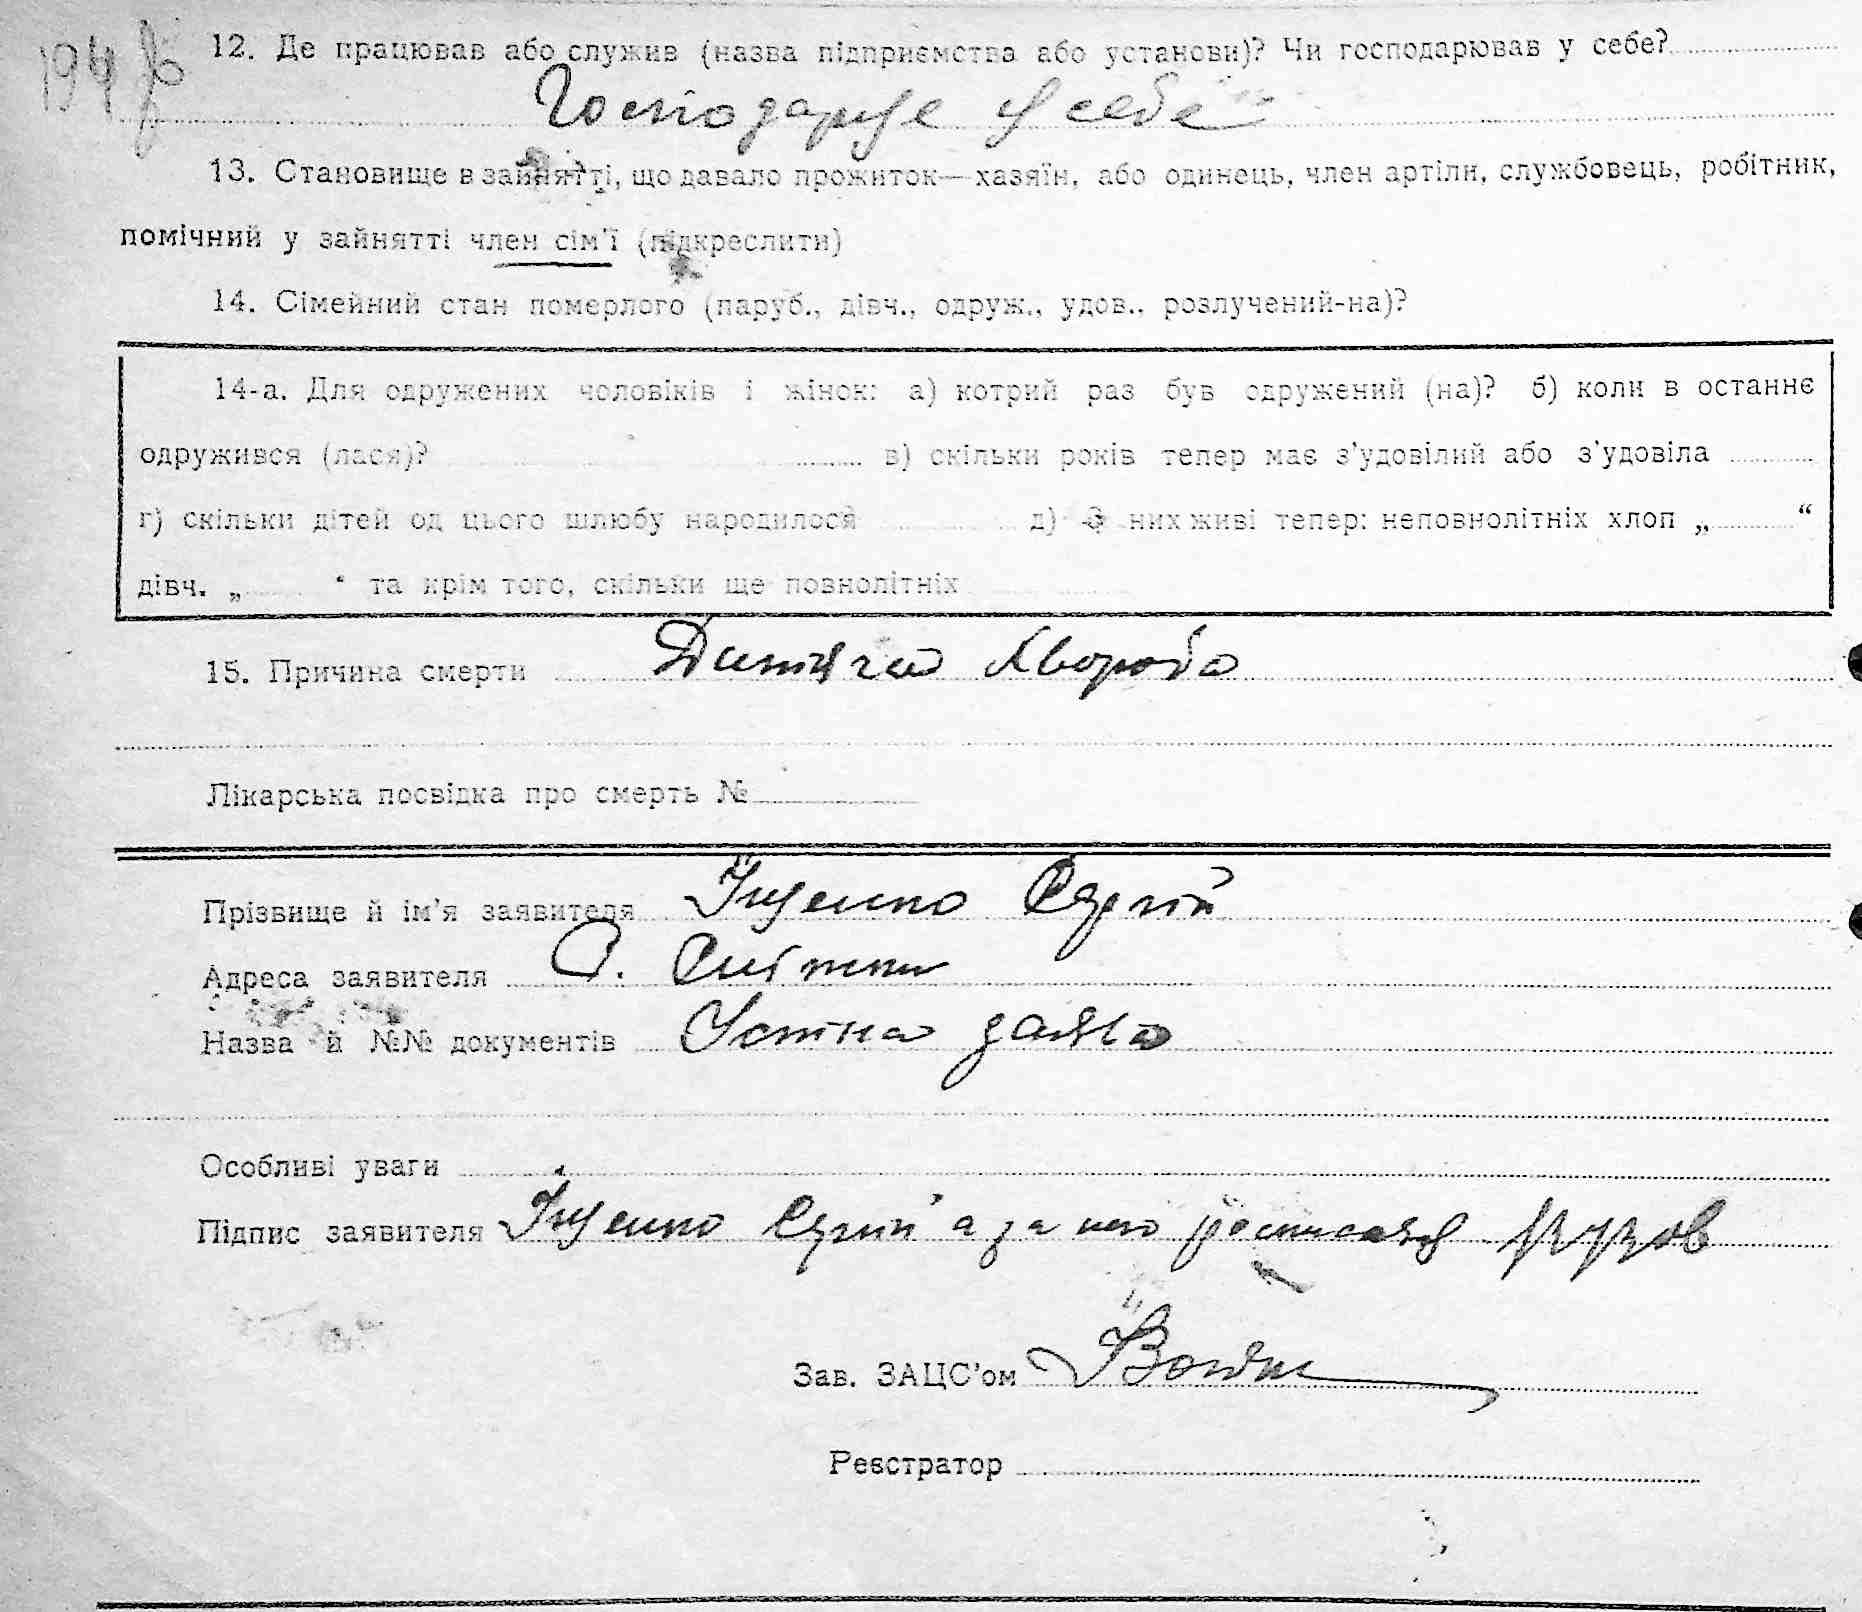 194
12. Де працював або служив (назва підприємства або установи)? Чи господарював у себе?
Господарує у себе
13. Становище в зайнятті, що давало прожиток—хазяїн, або одинець, член артіли, службовець, робітник,
помічний у зайнятті член сім'ї (підкреслити)
14. Сімейний стан померлого (паруб., дівч., одруж., удов., розлучений-на)?
14-а. Для одружених чоловіків і жінок: а) котрий раз був одружений (на)? б) коли в останнє
одружився (лася)? в) скільки років тепер має з'удовілий або з'удовіла
г) скільки дітей од цього шлюбу народилося д) З них живі тепер: неповнолітніх хлоп „ “
дівч. „ “ та крім того, скільки ще повнолітніх
15. Причина смерти Дитяча хвороба
Лікарська посвідка про смерть №
Прізвище й ім'я заявителя Іщенко Сергій
Адреса заявителя С.
Назва й №№ документів Устна заява
Особливі уваги
Підпис заявителя Іщенко Сергій а за него росписався
Зав. ЗАЦС'ом
Реєстратор